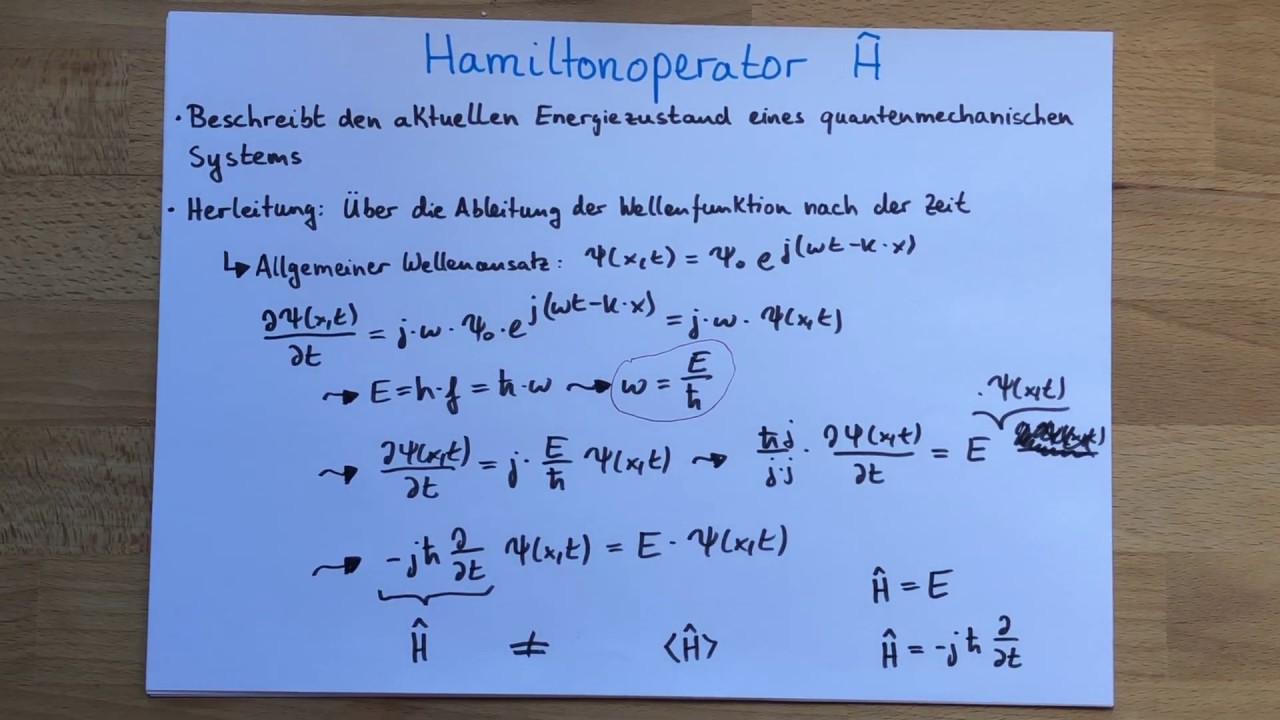 Hamiltonoperator Ĥ
• Beschreibt den aktuellen Energiezustand eines quantenmechanischen
Systems
• Herleitung: Über die Ableitung der Wellenfunktion nach der Zeit
↳ Allgemeiner Wellenansatz: Ψ(x,t) = Ψ₀ e^{j(ωt-k·x)}
∂Ψ(x,t)/∂t = j·ω·Ψ₀·e^{j(ωt-k·x)} = j·ω·Ψ(x,t)
⇝ E = h·f = ħ·ω ⇝ ω = E/ħ
⇝ ∂Ψ(x,t)/∂t = j·E/ħ Ψ(x,t) ⇝ ħj/j·j · ∂Ψ(x,t)/∂t = E ·Ψ(x,t)
⇝ -jħ ∂/∂t Ψ(x,t) = E·Ψ(x,t)
Ĥ = E
Ĥ ≠ ⟨Ĥ⟩
Ĥ = -jħ ∂/∂t